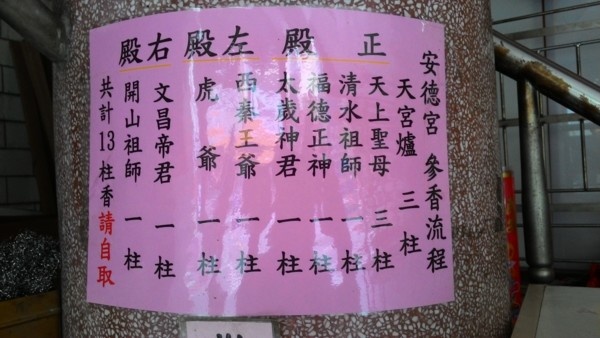 安德宮 參香流程
天宮爐 三柱
正殿
天上聖母 三柱
清水祖師 一柱
福德正神 一柱
太歲神君 一柱
左殿
西秦王爺 一柱
虎爺 一柱
右殿
文昌帝君 一柱
開山祖師 一柱
共計13柱香請自取